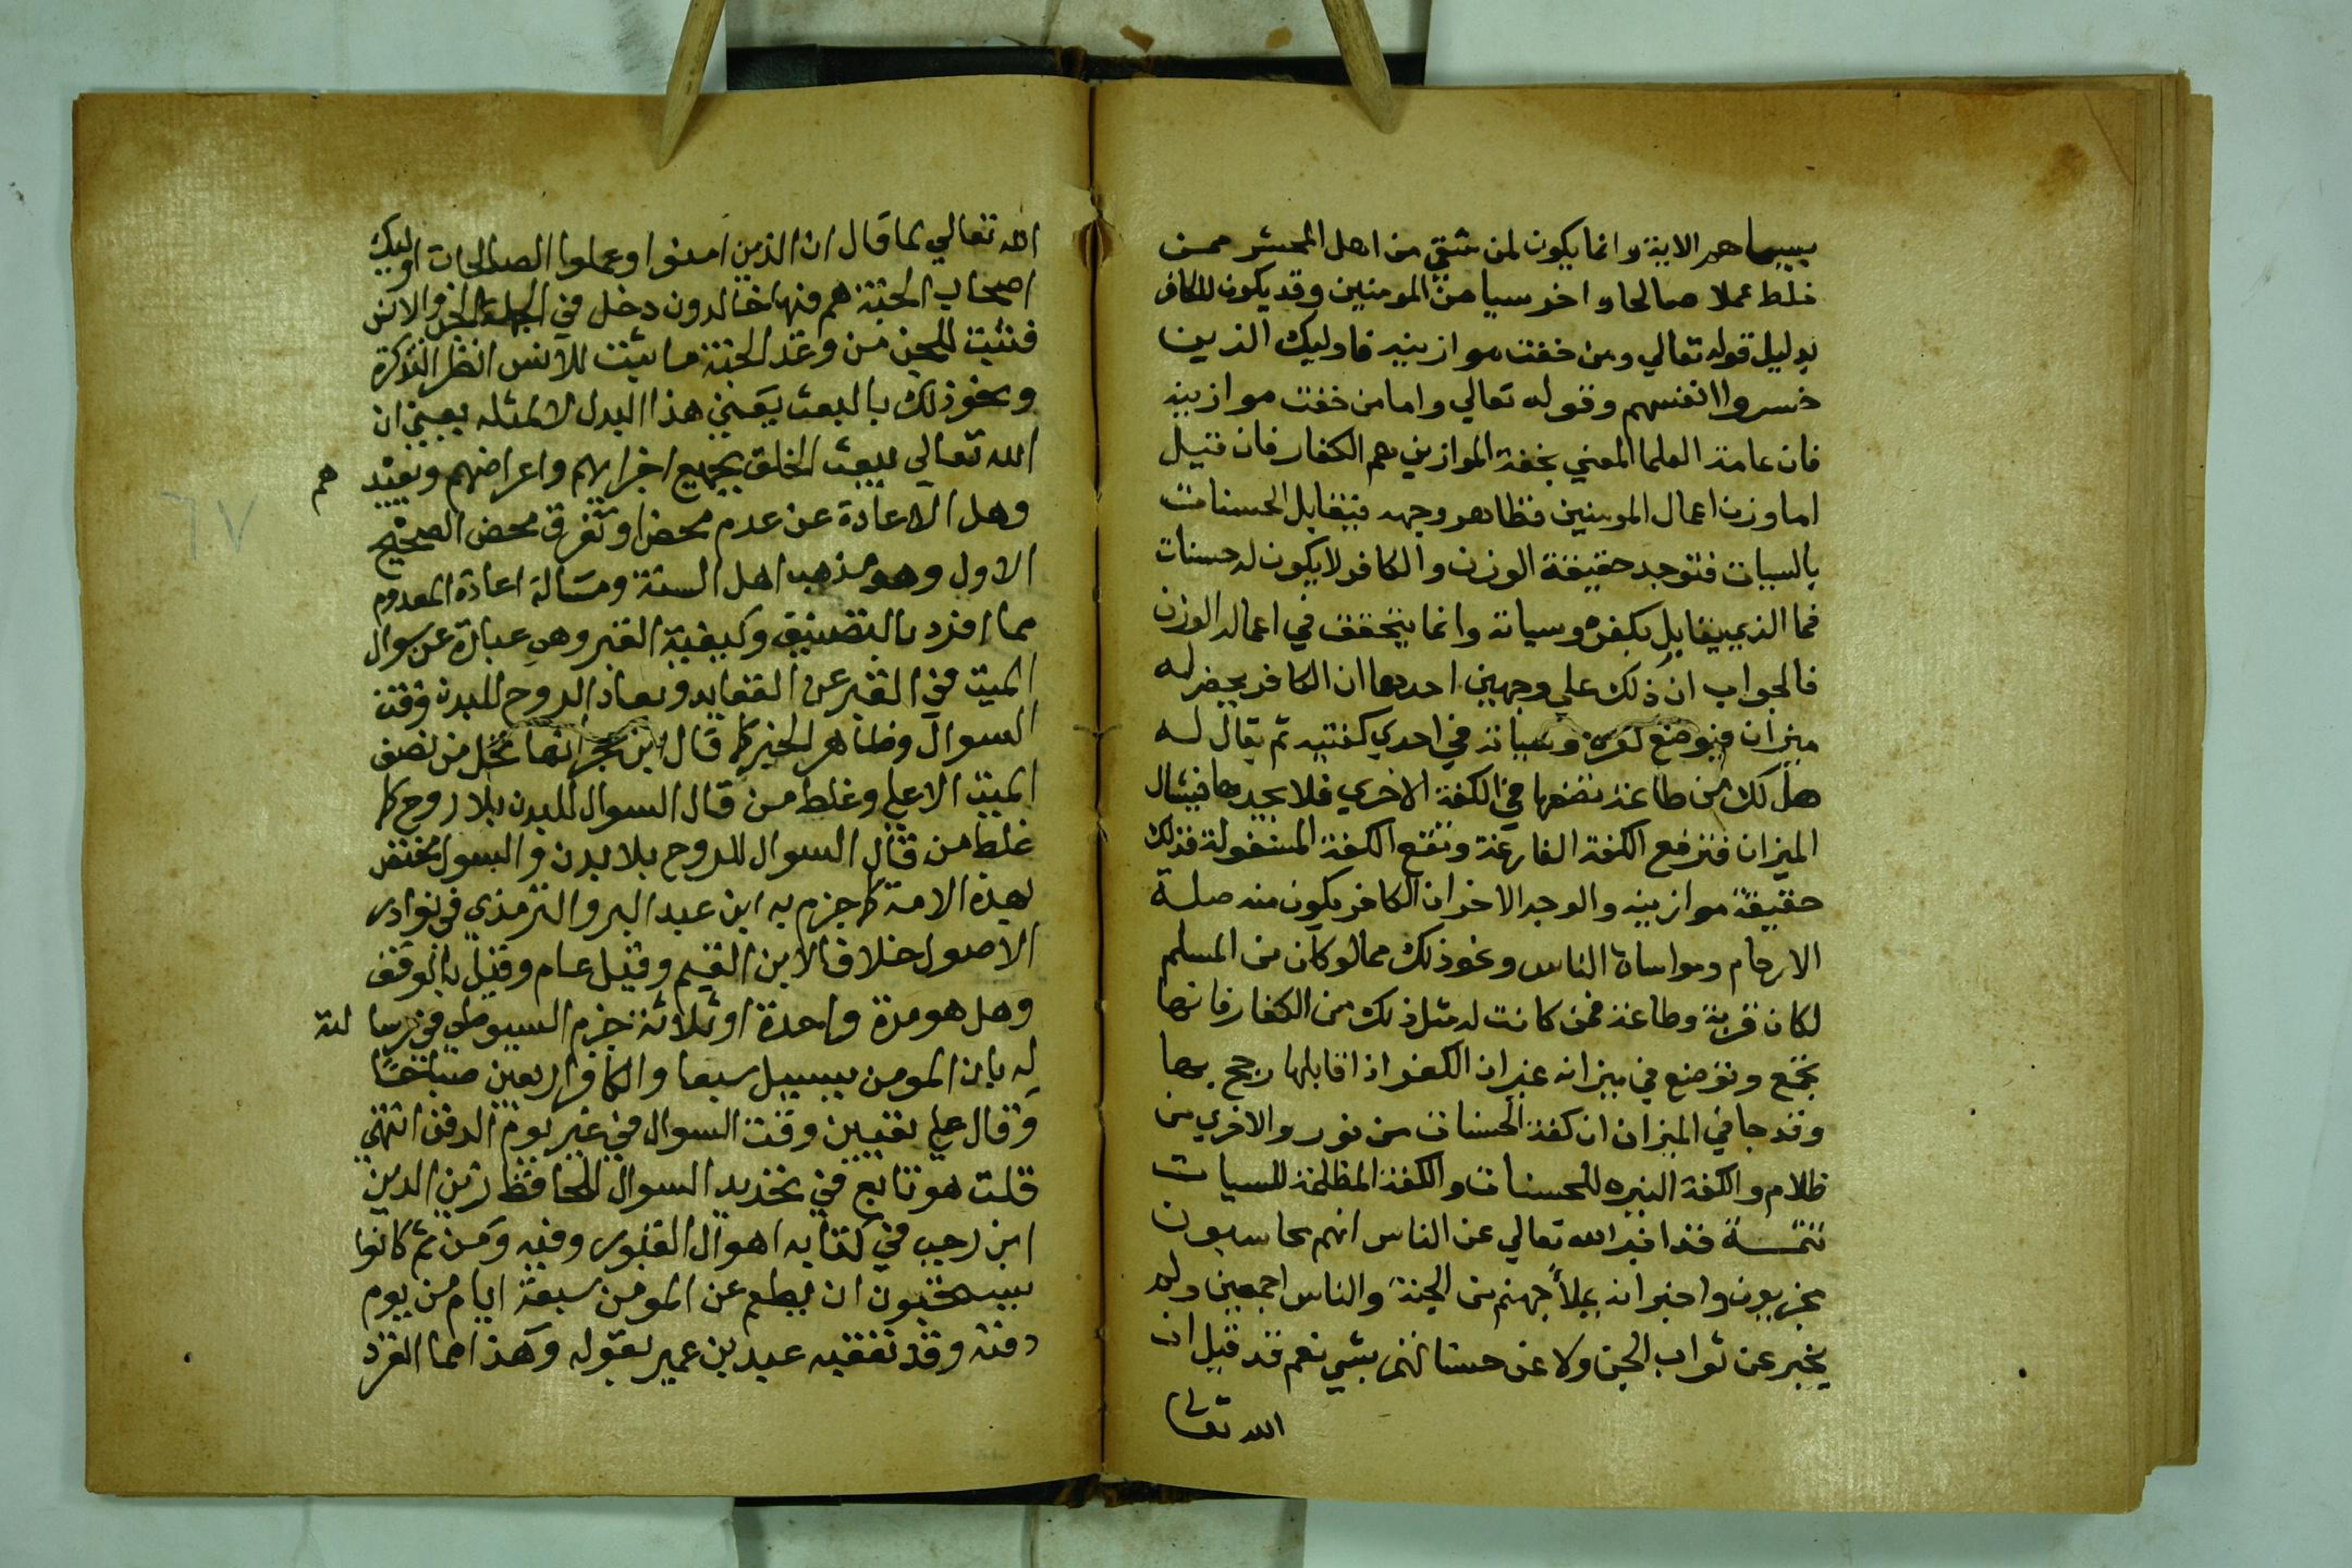 بسيماهم الاية وانما يكون لمن بقي من اهل المحشر ممن
خلط عملا صالحا واخر سيا من المومنين وقد يكون للكافر
بدليل قوله تعالي ومن خفت موازينه فاوليك الذين
خسروا انفسهم وقوله تعالي واما من خفت موازينه
فان عامة العلما المعني بخفة الموازين هم الكفار فان قيل
اما وزن اعمال المومنين فظاهر وجهه فيتقابل الحسنات
بالسيات فتوجد حقيقة الوزن والكافر لا يكون له حسنات
فما الذي يقابل بكفره وسياته وانما يتحقق في اعماله الوزن
فالجواب ان ذلك علي وجهين احدهما ان الكافر يحضر له
ميزان فيوضع كفره وسياته في احدي كفتيه ثم يقال له
هل لك من طاعة نضعها في الكفة الاخري فلا يجدها فيشال
الميزان فترفع الكفة الفارغة وتقع الكفة المشغولة فذلك
حقيقة موازينه والوجه الاخر ان الكافر يكون منه صلة
الارحام ومواساة الناس ونحو ذلك مما لو كان من المسلم
لكان قربة وطاعة فمن كانت له مثل ذلك من الكفار فانها
تجمع وتوضع في ميزانه غير ان الكفر اذا قابلها رجح بها
وقد جا في الميزان ان كفة الحسنات من نور والاخري من
ظلام والكفة النيره للحسنات والكفة المظلمة للسيات
تتمة قد اخبر الله تعالي عن الناس انهم محاسبون
مجزيون واخبر انه يملأ جهنم من الجنة والناس اجمعين ولم
يخبر عن ثواب الجن ولا عن حسناتهم بشي نعم قد قيل ان
الله تعالي
الله تعالي لما قال ان الذين امنوا وعملوا الصالحات اوليك
اصحاب الجنة هم فيها خالدون دخل في الجملة الجن والانس
فثبت للجن من وعد الجنة ما يثبت للانس انظر التذكرة
ونحو ذلك بالبعث يعني هذا البدل لا لمثله يعني ان
الله تعالي يبعث الخلق بجميع اجزايهم واعراضهم ويعيد هم
وهل الاعادة عن عدم محض او تفرق محض الصحيح
الاول وهو مذهب اهل السنة ومسالة اعادة المعدوم
مما افرد بالتصنيف وكيفية القبر وهي عبارة عن سوال
الميت في القبر عن العقايد وتعاد الروح للبدن وقت
السوال وظاهر الخبر كما قال ابن حجر انها تحل من نصف
الميت الاعلي وغلط من قال السوال للبدن بلا روح كما
غلط من قال السوال للروح بلا بدن والسوال مختص
بهذه الامة كما جزم به ابن عبد البر والترمذي في نوادر
الاصول خلافا لابن القيم وقيل عام وقيل بالوقف
وهل هو مرة واحدة او ثلاثة جزم السيوطي في رسا لة
له بان المومن يسيل سبعا والكافر اربعين صباحًا
وقال علي تعيين وقت السوال في غير يوم الدفن انتهي
قلت هو تابع في تحديد السوال للحافظ زين الدين
ابن رجب في كتابه اهوال القبور وفيه ومن ثم كانوا
يستحبون ان يطعم عن المومن سبعة ايام من يوم
دفنه وقد تعقبه عبيد بن عمير بقوله وهذا مما انفرد
٦٧